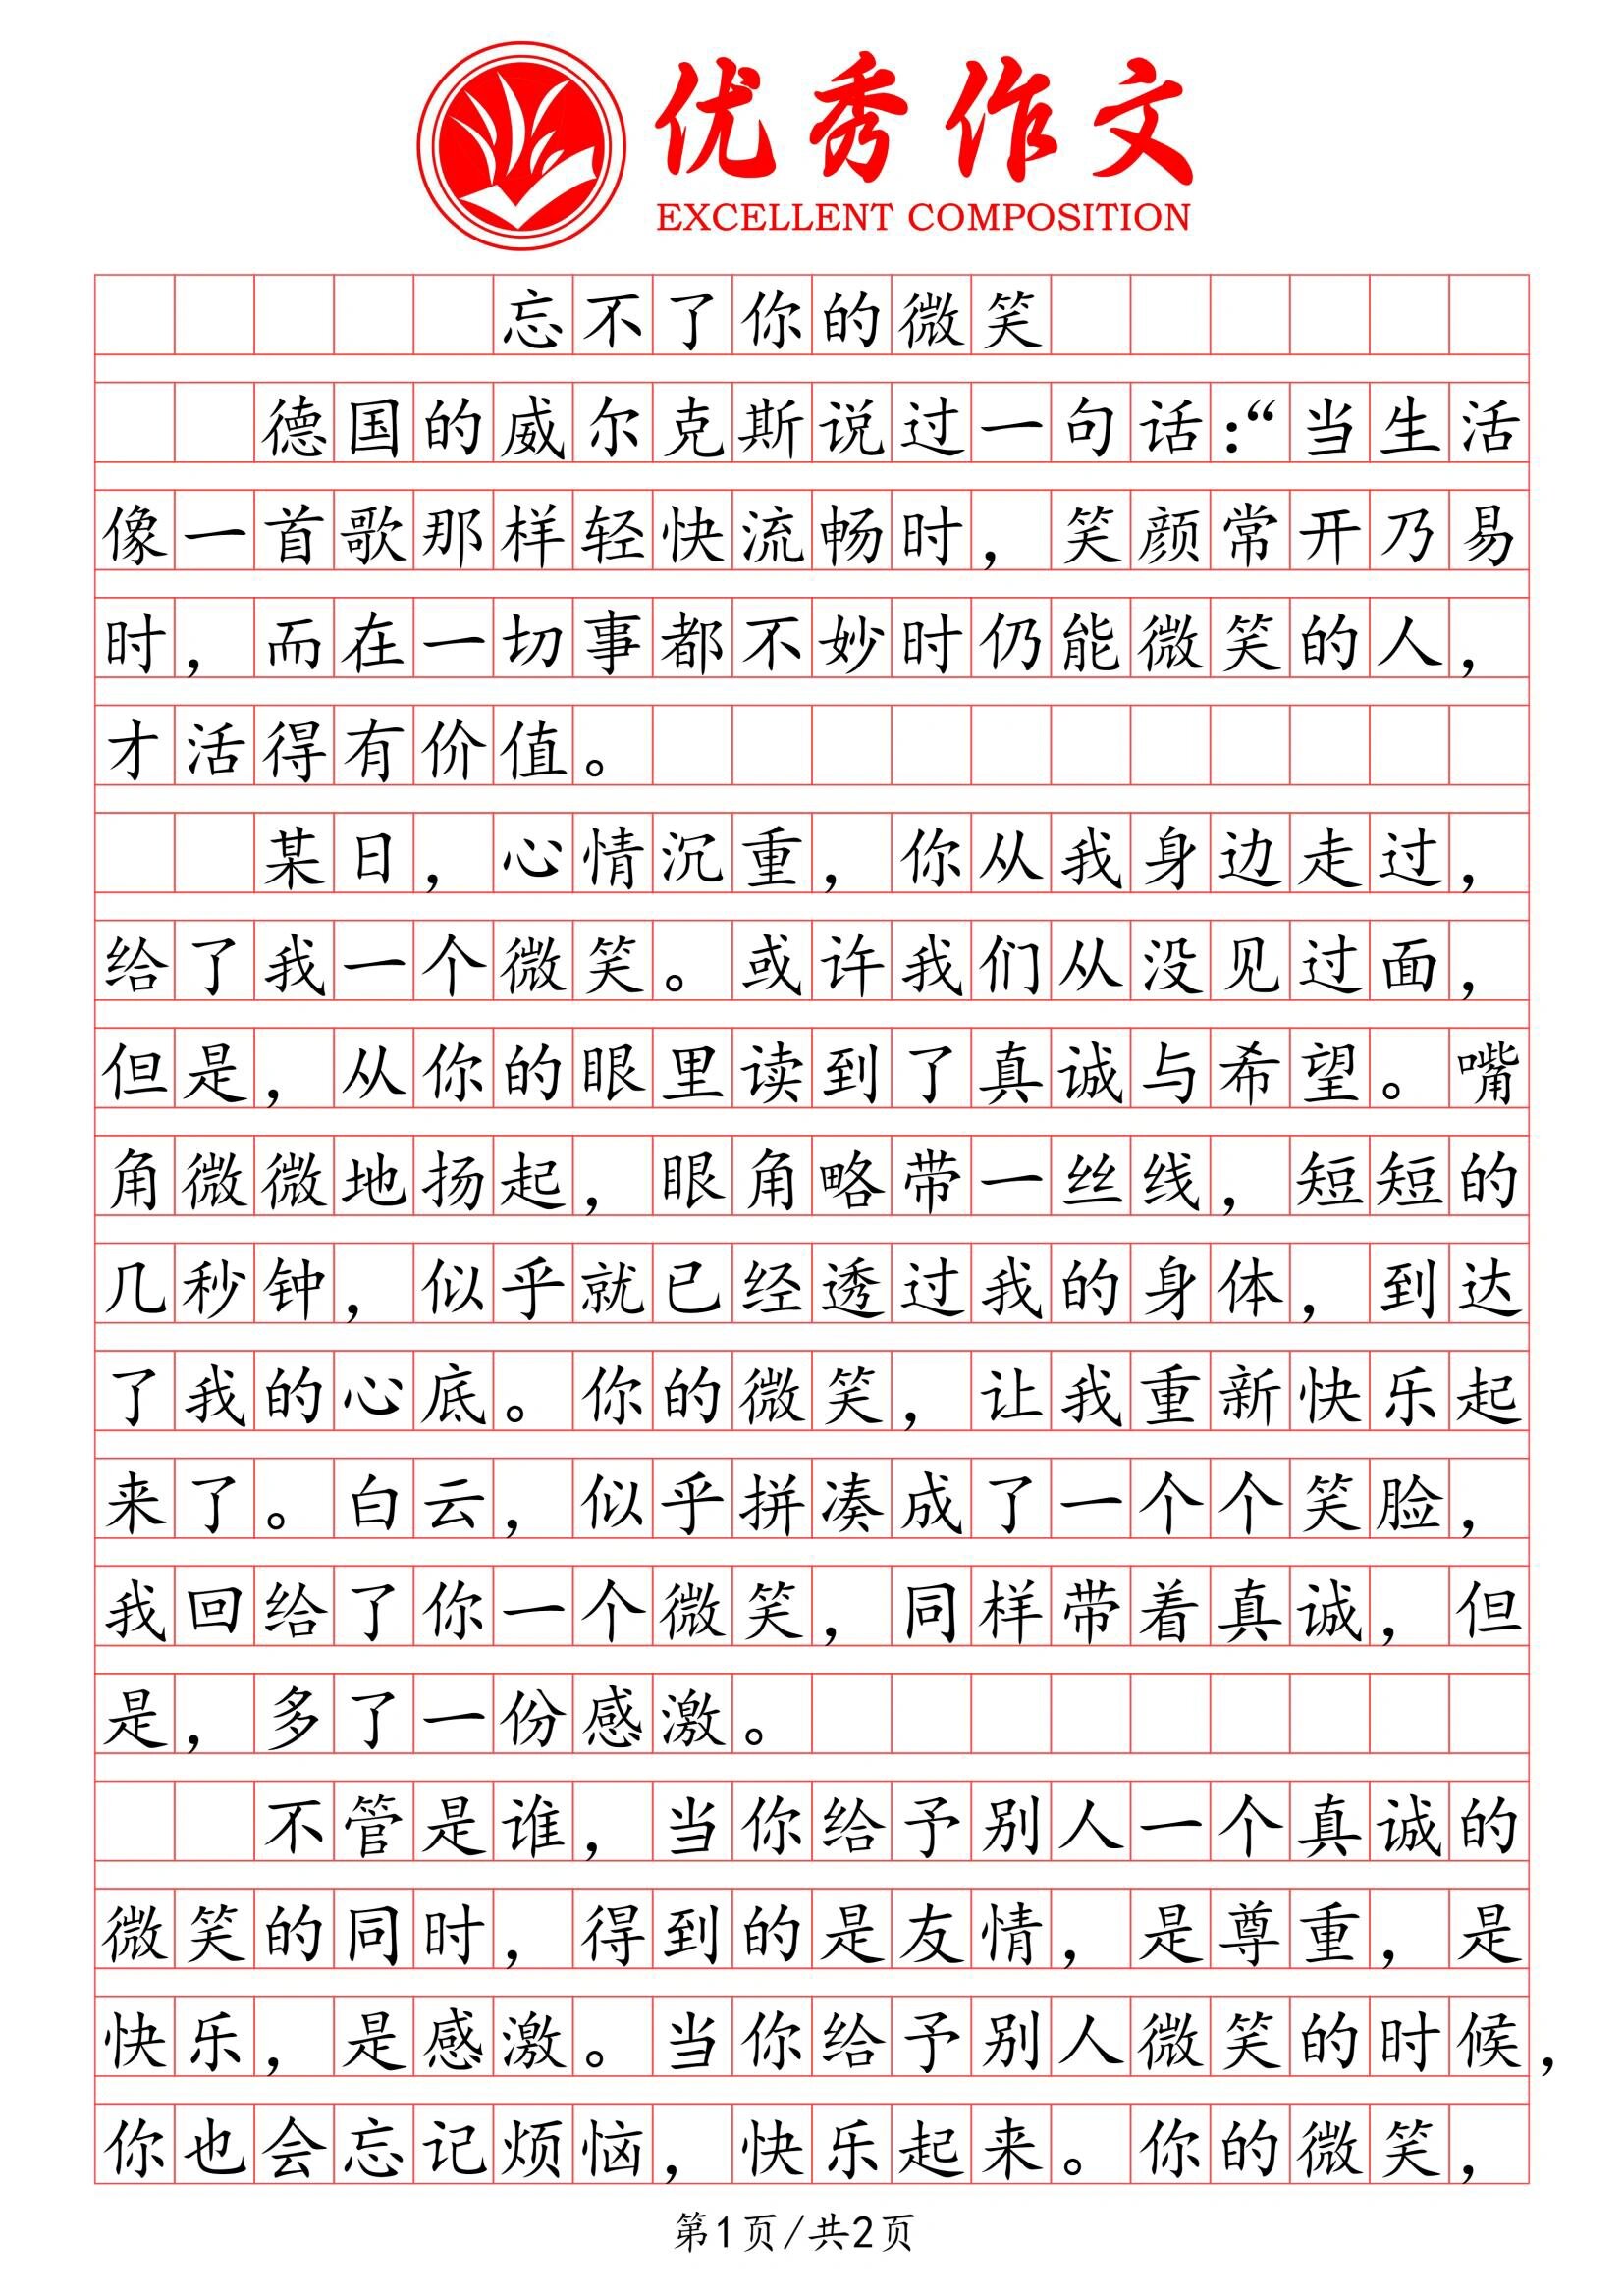 优秀作文
EXCELLENT COMPOSITION
忘不了你的微笑
德国的威尔克斯说过一句话:“当生活
像一首歌那样轻快流畅时，笑颜常开乃易
时，而在一切事都不妙时仍能微笑的人，
才活得有价值。
某日，心情沉重，你从我身边走过，
给了我一个微笑。或许我们从没见过面，
但是，从你的眼里读到了真诚与希望。嘴
角微微地扬起，眼角略带一丝线，短短的
几秒钟，似乎就已经透过我的身体，到达
了我的心底。你的微笑，让我重新快乐起
来了。白云，似乎拼凑成了一个个笑脸，
我回给了你一个微笑，同样带着真诚，但
是，多了一份感激。
不管是谁，当你给予别人一个真诚的
微笑的同时，得到的是友情，是尊重，是
快乐，是感激。当你给予别人微笑的时候，
你也会忘记烦恼，快乐起来。你的微笑，
第1页/共2页